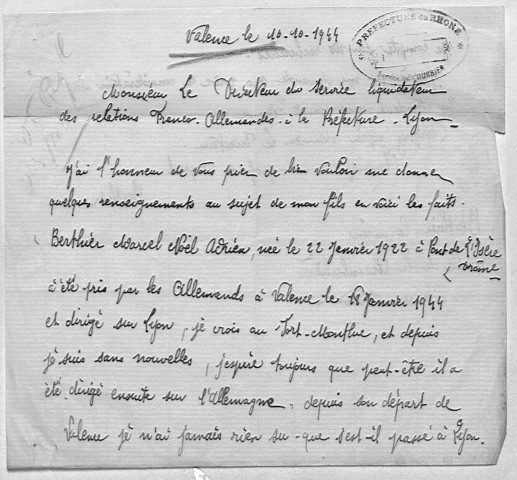 Valence le 10-10-1944
PREFECTURE DU RHÔNE
COURRIER
Monsieur Le Directeur du Service liquidateur
des relations Franco-Allemandes - à la Préfecture - Lyon
J'ai l'honneur de vous prier de bien vouloir me donner
quelques renseignements au sujet de mon fils en voici les faits.
Berthier Marcel Noël Adrien, née le 22 Janvier 1922 à Pont de l'Isère
(Drôme
à été pris par les Allemands à Valence le Janvier 1944
et dirigé sur Lyon, je crois au Fort-Montluc, et depuis
je suis sans nouvelles, j'espère toujours que peut-être il a
été dirigé ensuite sur l'Allemagne, depuis son départ de
Valence je n'ai jamais rien su - que s'est-il passé à Lyon.